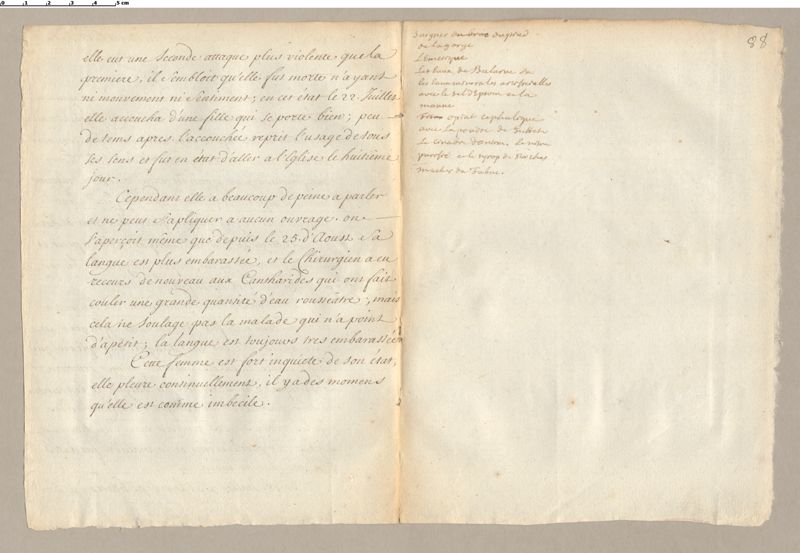 elle eut une Seconde attaque plus violente que la
premiere, il Sembloit qu'elle fut morte n'ayant
ni mouvement ni Sentiment; en cet état le 22. Juillet
elle accoucha d'une fille qui se porte bien; peu
de tems apres l'accouchée reprit l'usage de tous
ses sens et fut en état d'aller a l'Eglise le huitieme
jour.
Cependant elle a beaucoup de peine a parler
et ne peut s'apliquer a aucun ouvrage. on
s'aperçoit même que depuis le 25. d'Aoust Sa
langue est plus embarassée, et le Chirurgien a eu
recours de nouveau aux Cantharides qui ont fait
couler une grande quantité d'eau roussêatre; mais
cela ne soulage pas la malade qui n'a point
d'apetit; la langue est toujours tres embarassée
Cette femme est fort inquiete de son etat,
elle pleure continuellement, il y a des momens
qu'elle est comme imbecile.
88
Saigner du bras du pied
de la gorge
L'Emetique
Les eaux de Balaruc ou
les eaux minerales artificielles
avec le sel d'Epsom et la
manne
opiat cephalique
avec la poudre de
le
et le syrop de
macher du Tabac.